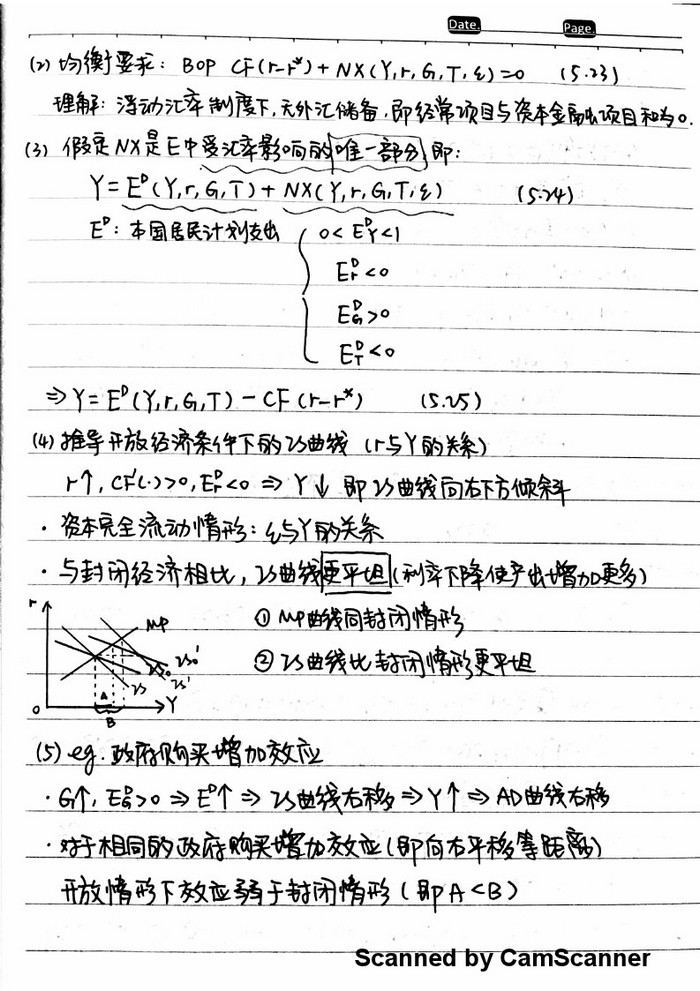 Date.
Page.
(2) 均衡要求: BOP CF(r-r*)+NX(Y,r,G,T,ε)=0 (5.23)
理解: 浮动汇率制度下,无外汇储备,即经常项目与资本金融项目和为0.
(3) 假定NX是E中受汇率影响的唯一部分,即:
Y=Eᴰ(Y,r,G,T)+NX(Y,r,G,T,ε) (5.24)
Eᴰ: 本国居民计划支出 0<Eᴰ_Y<1
Eᴰ_r<0
Eᴰ_G>0
Eᴰ_T<0
⇒Y=Eᴰ(Y,r,G,T)-CF(r-r*) (5.25)
(4) 推导开放经济条件下的IS曲线 (r与Y的关系)
r↑, CF'(·)>0, Eᴰ_r<0 ⇒ Y↓ 即IS曲线向右下方倾斜
· 资本完全流动情形: ε与Y的关系
· 与封闭经济相比, IS曲线更平坦(利率下降使产出增加更多)
r MP
① MP曲线同封闭情形
② IS曲线比封闭情形更平坦
IS₀' IS₀ IS IS'
O A Y
B
(5) eg. 政府购买增加效应
· G↑, Eᴰ_G>0 ⇒ Eᴰ↑ ⇒ IS曲线右移 ⇒ Y↑ ⇒ AD曲线右移
· 对于相同的政府购买增加效应(即向右平移等距离)
开放情形下效应弱于封闭情形(即A<B)
Scanned by CamScanner